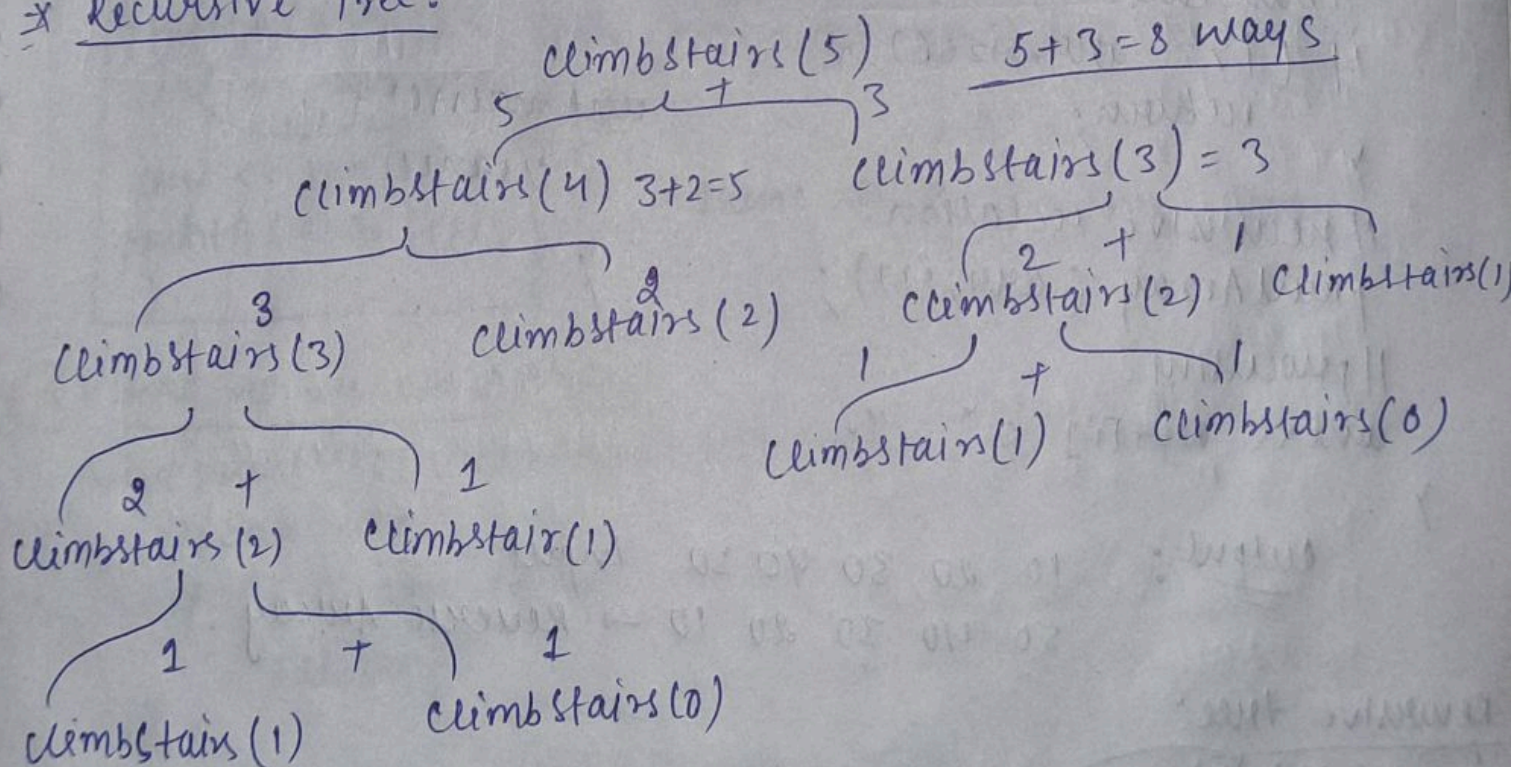 * Recursive Tree:
climbstairs (5) 5+3=8 ways
5 + 3
climbstairs (4) 3+2=5 climbstairs (3) = 3
3 2 2 + 1
climbstairs (3) climbstairs (2) climbstairs (2) climbstairs (1)
2 + 1 1 + 1
climbstairs (2) climbstair (1) climbstairs (1) climbstairs (0)
1 + 1
climbstairs (1) climbstairs (0)